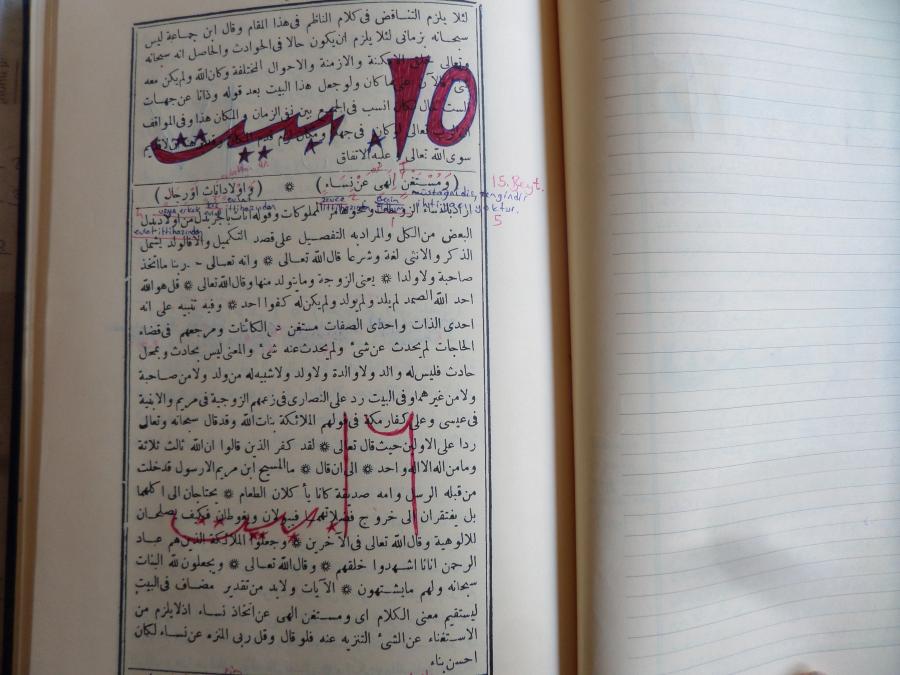 لئلا يلزم التناقض فى كلام الناظم فى هذا المقام وقال ابن جماعة ليس
سبحانه بزمانى لئلا يلزم ان يكون حالا فى الحوادث والحاصل انه سبحانه
وتعالى خلق الامكنة والازمنة والاحوال المختلفة وكان الله ولم يكن معه
ما كان ولو جعل هذا البيت بعد قوله وذاتا عن جهات
الست انسب فى الجمع بين نفى الزمان والمكان هذا وفى المواقف
١٥. بيت
سوى الله تعالى عليه الاتفاق
(ومستغن الهى عن نساء) ❋ (واولاد اناث او رجال)
15. Beyt.
müstağnidir, zengindir
ihtiyacı yoktur.
5
evlat ittihazından
المملوكات وقوله اناث بالجر بدل من اولاد بدل
البعض من الكل والمراد به التفصيل على قصد التكميل والا فالولد يشمل
الذكر والانثى لغة وشرعا قال الله تعالى ❋ وانه تعالى جد ربنا ما اتخذ
صاحبة ولا ولدا ❋ يعنى الزوجة وما تولد منها وقال الله تعالى ❋ قل هو الله
احد الله الصمد لم يلد ولم يولد ولم يكن له كفوا احد ❋ وفيه تنبيه على انه
احدى الذات واحدى الصفات مستغن عن الكائنات ومرجعهم فى قضاء
الحاجات لم يحدث عن شئ ولم يحدث عنه شئ والمعنى ليس بحادث وبمحل
حادث فليس له والد ولا والدة ولا ولد ولا شبيه له من ولد ولا من صاحبة
ولا من غيرهما وفى البيت رد على النصارى فى زعمهم الزوجية فى مريم والابنية
فى عيسى وعلى كفار مكة فى قولهم الملائكة بنات الله وقد قال سبحانه وتعالى
ردا على الاولين حيث قال تعالى ❋ لقد كفر الذين قالوا ان الله ثالث ثلاثة
وما من اله الا اله واحد ❋ الى ان قال ❋ ما المسيح ابن مريم الا رسول قد خلت
من قبله الرسل وامه صديقة كانا يأكلان الطعام ❋ يحتاجان الى اكلهما
بل يفتقران الى خروج فضلاتهما فيبولان ويغوطان فكيف يصلحان
١٦. بيت
للالوهية وقال الله تعالى فى الآخرين ❋ وجعلوا الملائكة الذين هم عباد
الرحمن اناثا اشهدوا خلقهم ❋ وقال الله تعالى ❋ ويجعلون لله البنات
سبحانه ولهم ما يشتهون ❋ الآيات ولا بد من تقدير مضاف فى البيت
ليستقيم معنى الكلام اى ومستغن الهى عن اتخاذ نساء اذ لا يلزم من
الاستغناء عن الشئ التنزيه عنه فلو قال وقل ربى المنزه عن نساء لكان
احسن بناء